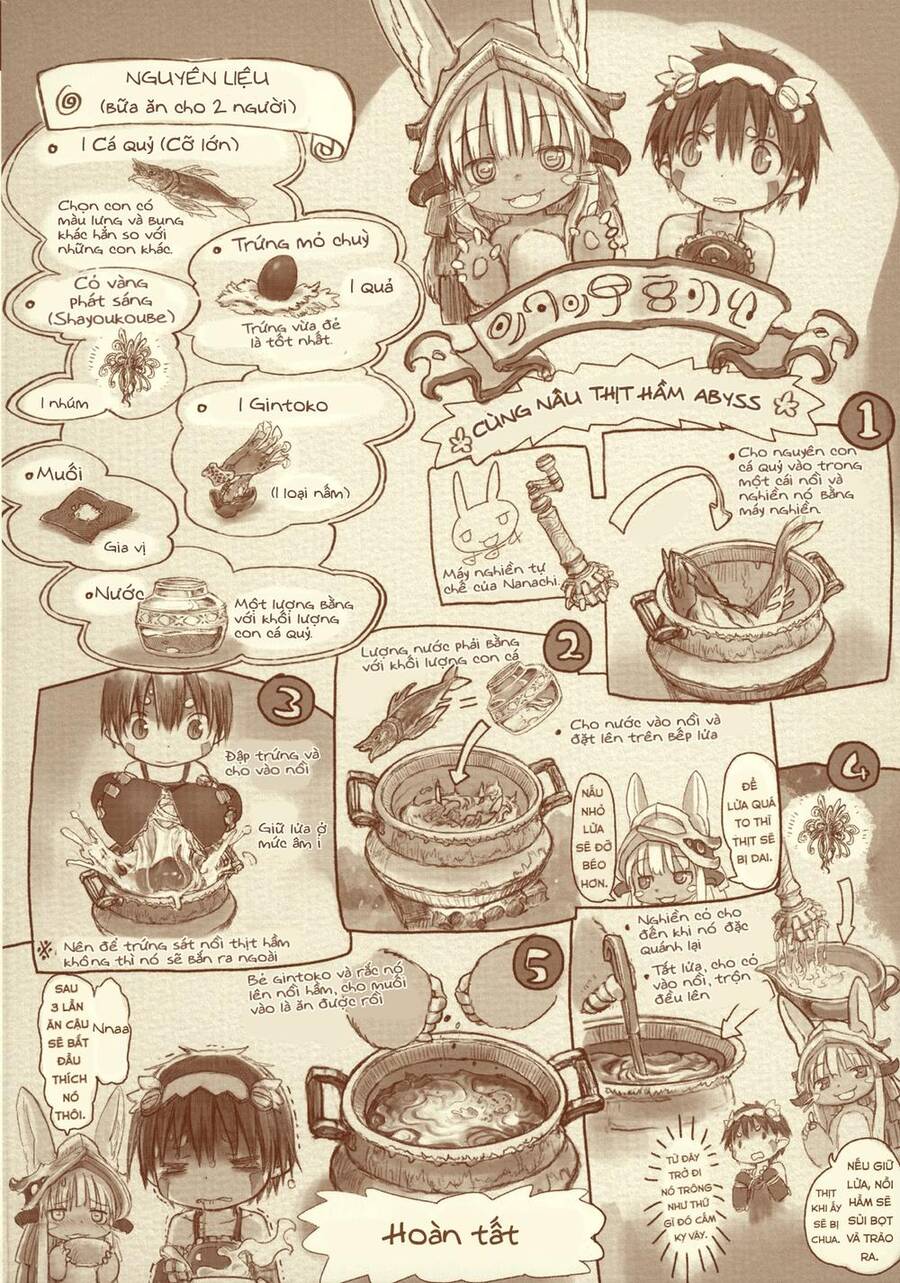 NGUYÊN LIỆU
(BỮA ĂN CHO 2 NGƯỜI)
1 Cá quỷ (Cỡ lớn)
Chọn con có
màu lưng và bụng
khác hẳn so với
những con khác.
Trứng mỏ chuỳ
1 Quả
Trứng vừa đẻ
là tốt nhất.
Cỏ vàng
phát sáng
(Shayoukoube)
1 nhúm
1 Gintoko
(1 loại nấm)
Muối
Gia vị
Nước
Một lượng bằng
với khối lượng
con cá quỷ.
CÙNG NẤU THỊT HẦM ABYSS
1
Cho nguyên con
cá quỷ vào trong
một cái nồi và
nghiền nó bằng
máy nghiền.
Máy nghiền tự
chế của Nanachi.
2
Lượng nước phải bằng
với khối lượng con cá
=
Cho nước vào nồi và
đặt lên trên bếp lửa
ĐỂ
LỬA QUÁ
TO THÌ
THỊT SẼ
BỊ DAI.
NẤU
NHỎ
LỬA
SẼ ĐỠ
BÉO
HƠN.
3
Đập trứng và
cho vào nồi
Giữ lửa ở
mức âm ỉ
※ Nên để trứng sát nồi thịt hầm
không thì nó sẽ bắn ra ngoài
4
Nghiền cỏ cho
đến khi nó đặc
quánh lại
Tắt lửa, cho cỏ
vào nồi, trộn
đều lên
NẾU GIỮ
LỬA, NỒI
HẦM SẼ
SỦI BỌT
VÀ TRÀO
RA.
THỊT
KHI ẤY
SẼ BỊ
CHUA.
TỪ ĐÂY
TRỞ ĐI
NÓ TRÔNG
NHƯ THỨ
GÌ ĐÓ CẤM
KỴ VẬY.
5
Bẻ Gintoko và rắc nó
lên nồi hầm, cho muối
vào là ăn được rồi
Hoàn tất
SAU
3 LẦN
ĂN CẬU
SẼ BẮT
ĐẦU
THÍCH
NÓ
THÔI.
Nnaa